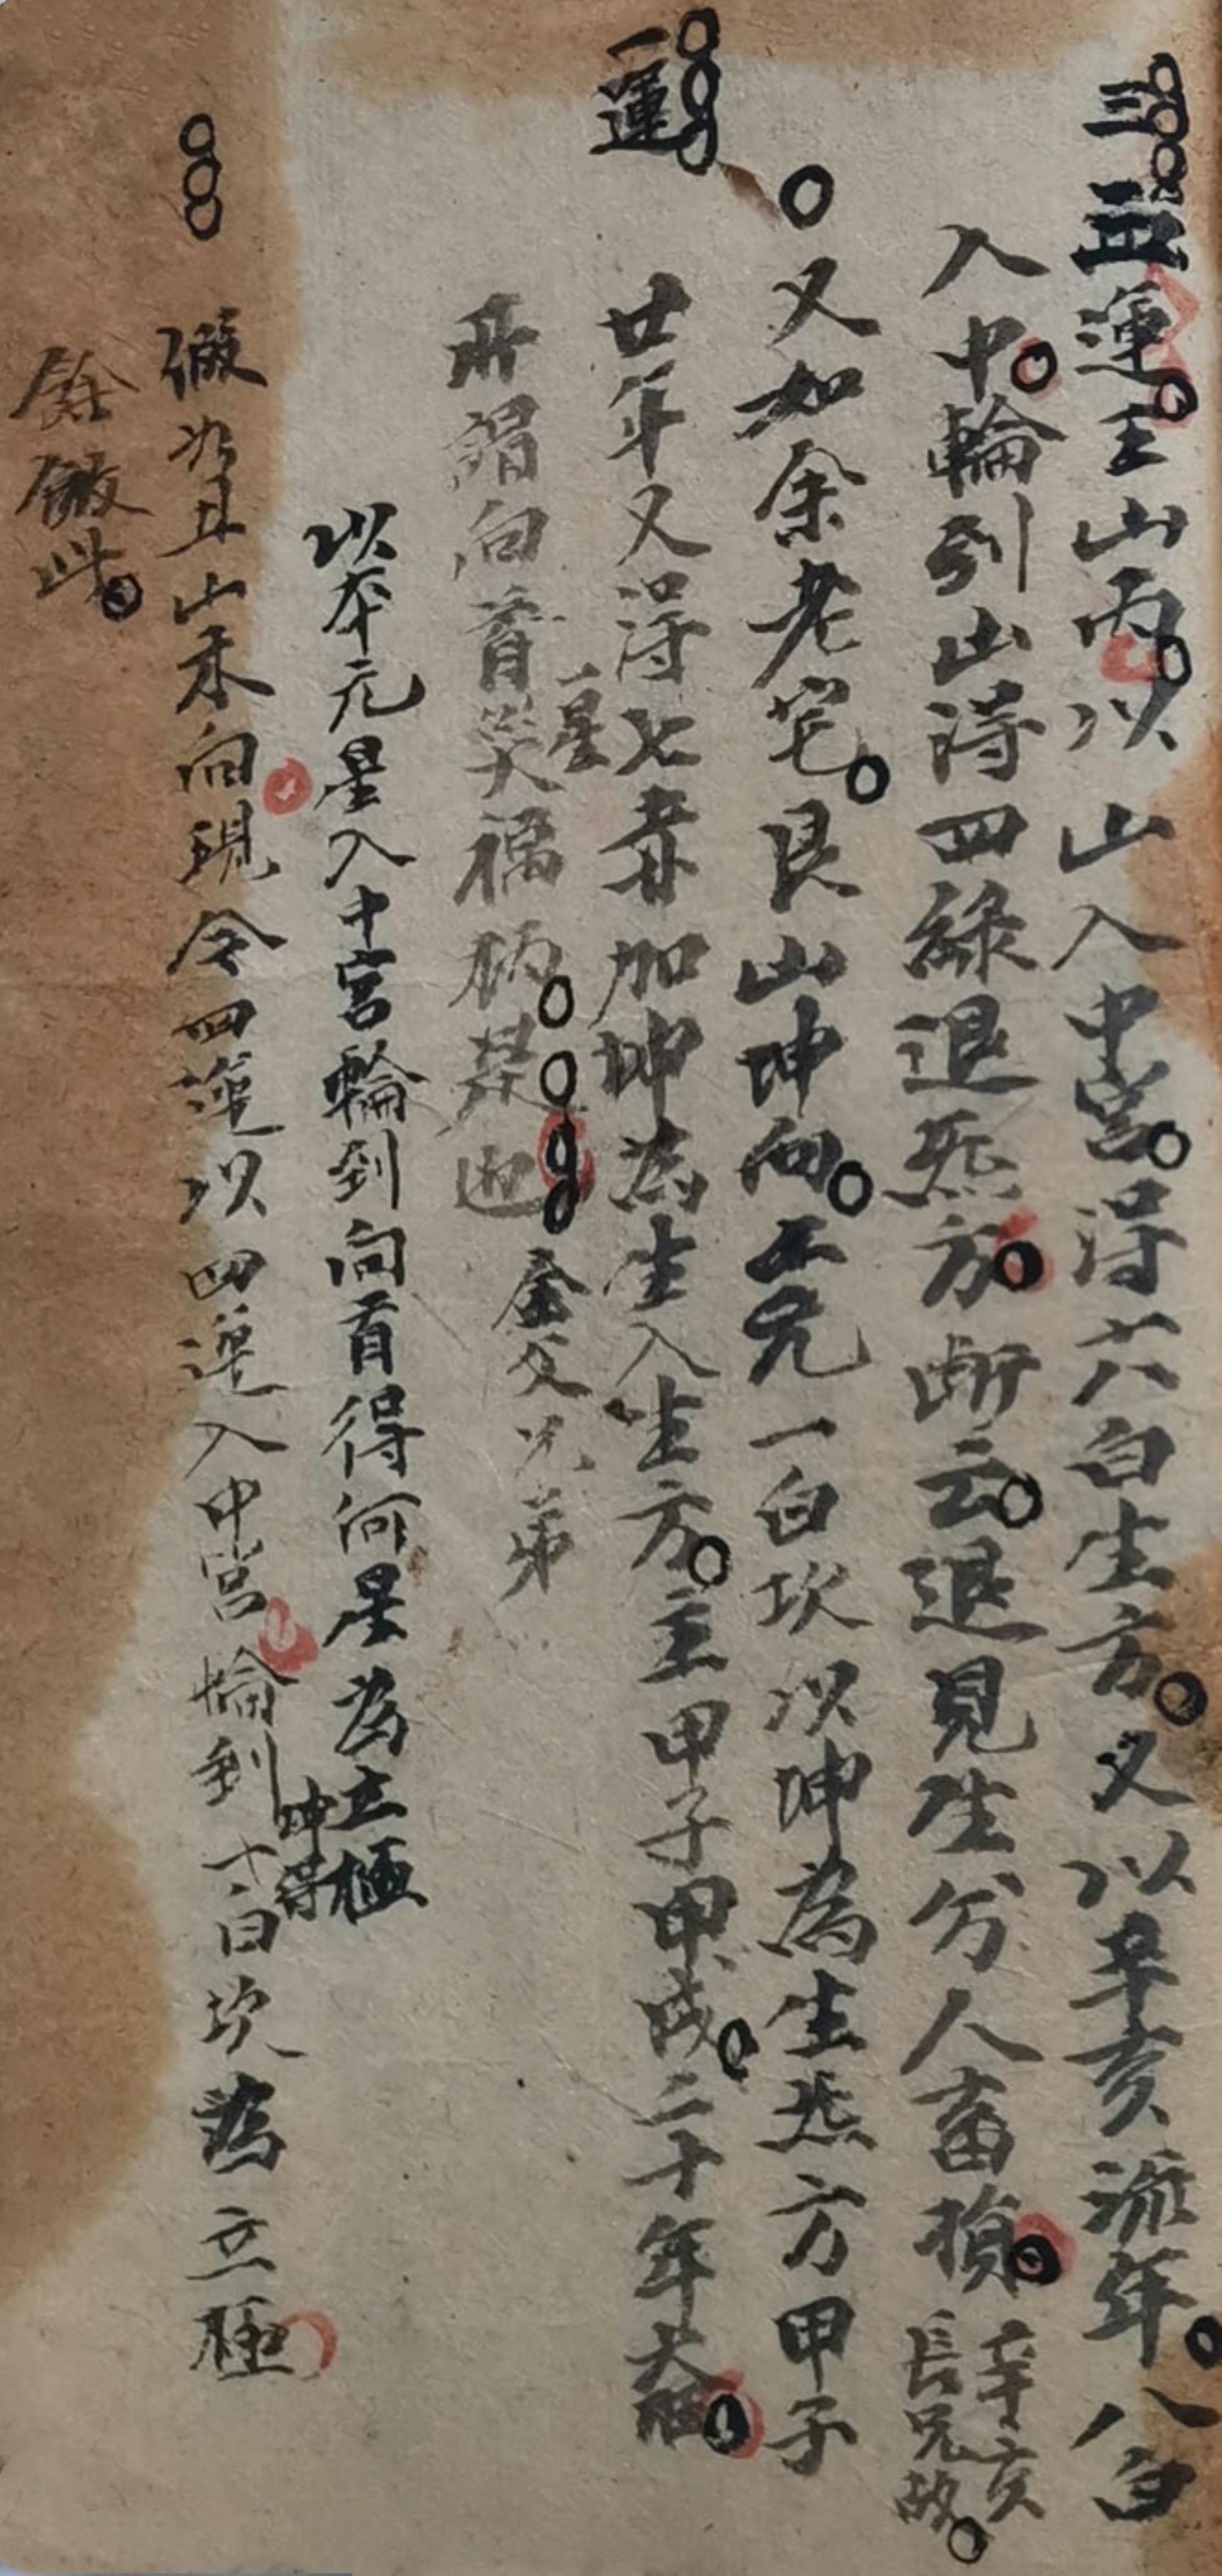 三運壬山丙以山入中宮得六白生方又以辛亥流年八白
入中輪到山得四綠退煞方斷云退見生分人畜損辛亥長兄故
又如余老宅艮山坤向上元一白坎以坤為生煞方甲子
一運
廿年又得七赤加坤為生入生方主甲子甲戌二十年大旺
所謂向首一星災福柄是也
余父兄弟
以本元星入中宮輪到向首得何星為立極
假如丑山未向現今四運以四運入中宮輪到坤得一白坎為立極
餘倣此